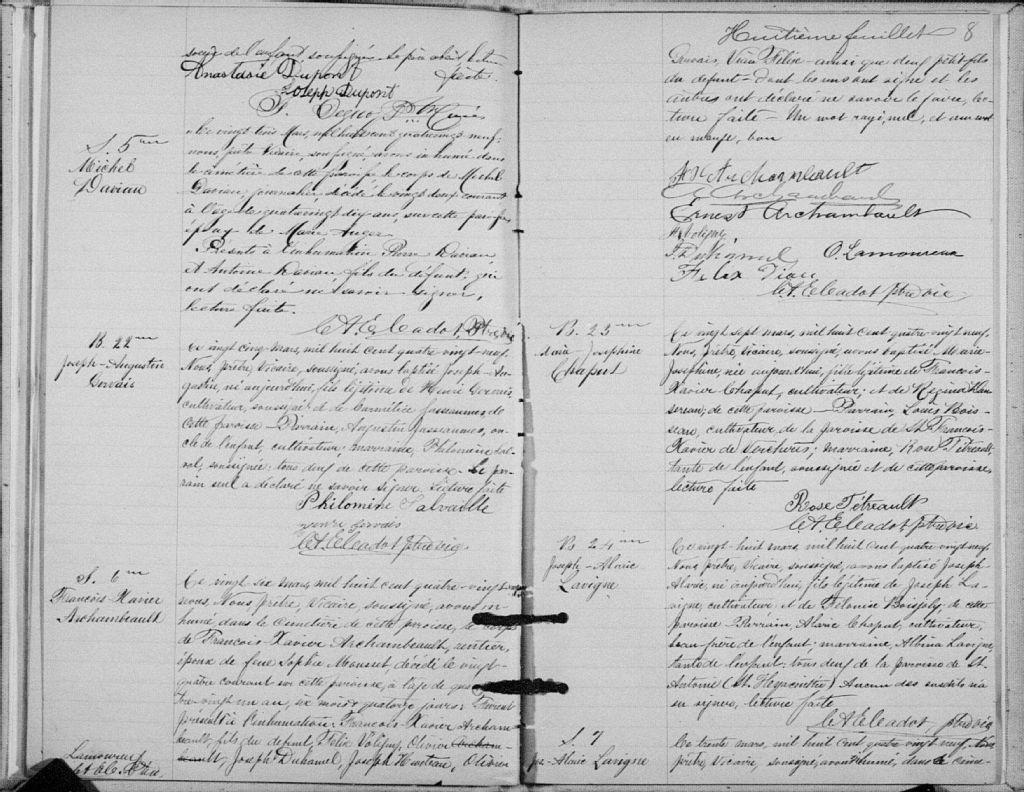 de l'enfant, soussignés. Le père absent. Lecture
Anastasie Dupont faite
Joseph Dupont
S. 5me
Michel
Daviau
Le vingt trois Mars, mil huit cent quatrevingt neuf,
nous, prêtre Vicaire, soussigné, avons inhumé dans
le cimetière de cette paroisse le corps de Michel
Daviau, journalier, décédé le vingt deux courant
à l'âge de quatrevingt dix ans, sur cette paroisse
époux de Marie Auger
Présents à l'inhumation Pierre Daviau
et Antoine Daviau fils du défunt, qui
ont déclaré ne savoir signer,
lecture faite.
C.A.E. Cadot, Ptre vic
B. 22me
Joseph-Augustin
Gervais
Ce vingt cinq mars, mil huit cent quatre-vingt-neuf,
Nous, prêtre, vicaire, soussigné, avons baptisé Joseph-Au-
gustin, né aujourd'hui, fils légitime de Henri Gervais,
cultivateur, soussigné et de Carmélite Jasseaumes, de
cette paroisse – Parrain, Augustin Jasseaumes, on-
cle de l'enfant, cultivateur; marraine, Philomène Sal-
vail, soussignée; tous deux de cette paroisse. Le par-
rain seul a déclaré ne savoir signer. Lecture faite
Philomine Salvaille
henri gervais
C.A.E. Cadot ptre vic
S. 6me
François-Xavier
Archambeault
Ce vingt six mars, mil huit cent quatre-vingt
neuf, Nous prêtre, Vicaire, soussigné, avons in-
humé, dans le cimetière de cette paroisse, le corps
de François-Xavier Archambeault, rentier,
époux de feue Sophie Mousset décédé le vingt-
quatre courant sur cette paroisse, à l'âge de qua-
tre-vingt un an, six mois, quatorze jours; Furent
présents à l'inhumation: François-Xavier Archam-
beault, fils du défunt, Félix Voligny, Olivier Archam-
beault, Joseph Duhamel, Joseph Huteau, Olivier
Lamoureux
Huitième feuillet 8
Gervais, Viau Félix – ainsi que deux petit-fils
du défunt – dont les uns ont signé et les
autres ont déclaré ne savoir le faire, lec-
ture faite – Un mot rayé, nul, et un mot
en marge, bon
F X Archambeault
E Archambault
Ernest Archambault
F. Voligny
J. Duhamel O. Lamoureux
Felix Viau
C.A.E. Cadot ptre vic
B. 23me
Marie Josephine
Chaput
Ce vingt sept mars, mil huit cent quatre-vingt neuf,
Nous, prêtre, Vicaire, soussigné, avons baptisé Marie
Joséphine, née aujourd'hui, fille légitime de François-
Xavier Chaput, cultivateur; et de Régina Han-
sereau; de cette paroisse – Parrain, Louis Bois-
seau, cultivateur de la paroisse de St. François-
Xavier de Verchères; marraine, Rose Tétreault
tante de l'enfant, soussignée et de cette paroisse,
lecture faite
Rose Tétreault
C.A.E. Cadot ptre vic
B. 24me
Joseph-Alaric
Lavigne
Ce vingt-huit mars, mil huit cent quatre-vingt neuf,
Nous prêtre, Vicaire, soussigné, avons baptisé Joseph
Alaric, né aujourd'hui, fils légitime de Joseph La-
vigne, cultivateur et de Félonise Boisjoly, de cette
paroisse – Parrain, Alaric Chaput, cultivateur,
beau-frère de l'enfant; marraine, Albina Lavigne,
tante de l'enfant; tous deux de la paroisse de St.
Antoine (St. Hyacinthe) Aucun des susdits n'a
su signer, lecture faite
C.A.E. Cadot ptre vic
S. 7
Jos-Alaric Lavigne
Ce trente mars, mil huit cent quatre vingt neuf, Nous
prêtre, Vicaire, soussigné, avons inhumé, dans le cime-